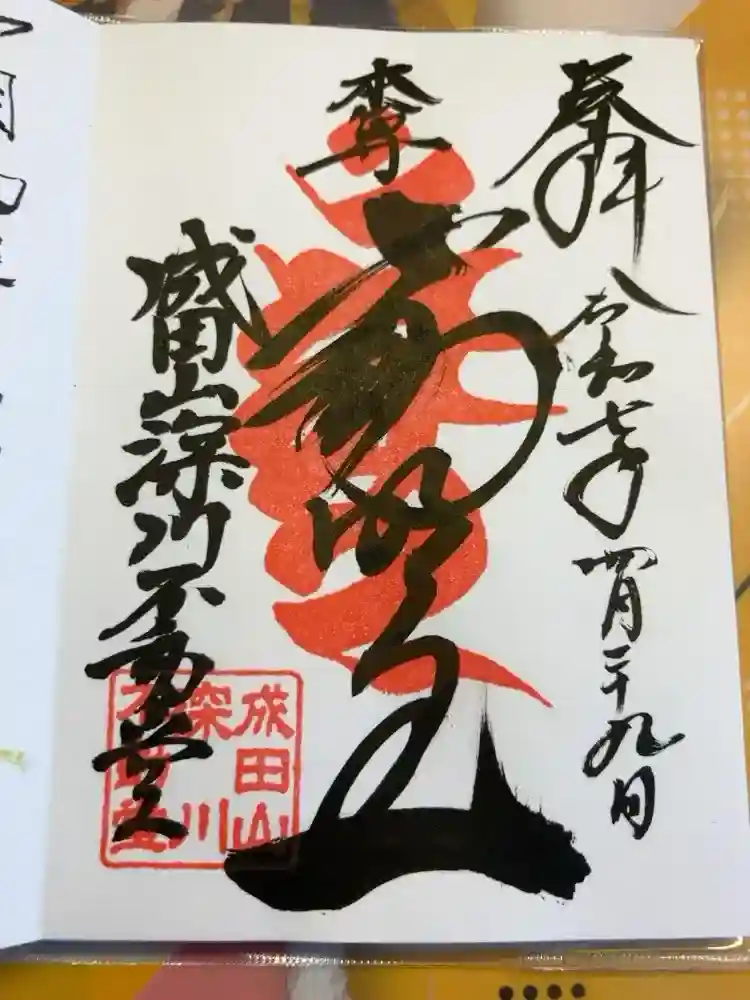 奉拝
令和七年
四月二十九日
本尊
不動明王
成田山深川不動堂
成田山
深川
不動堂